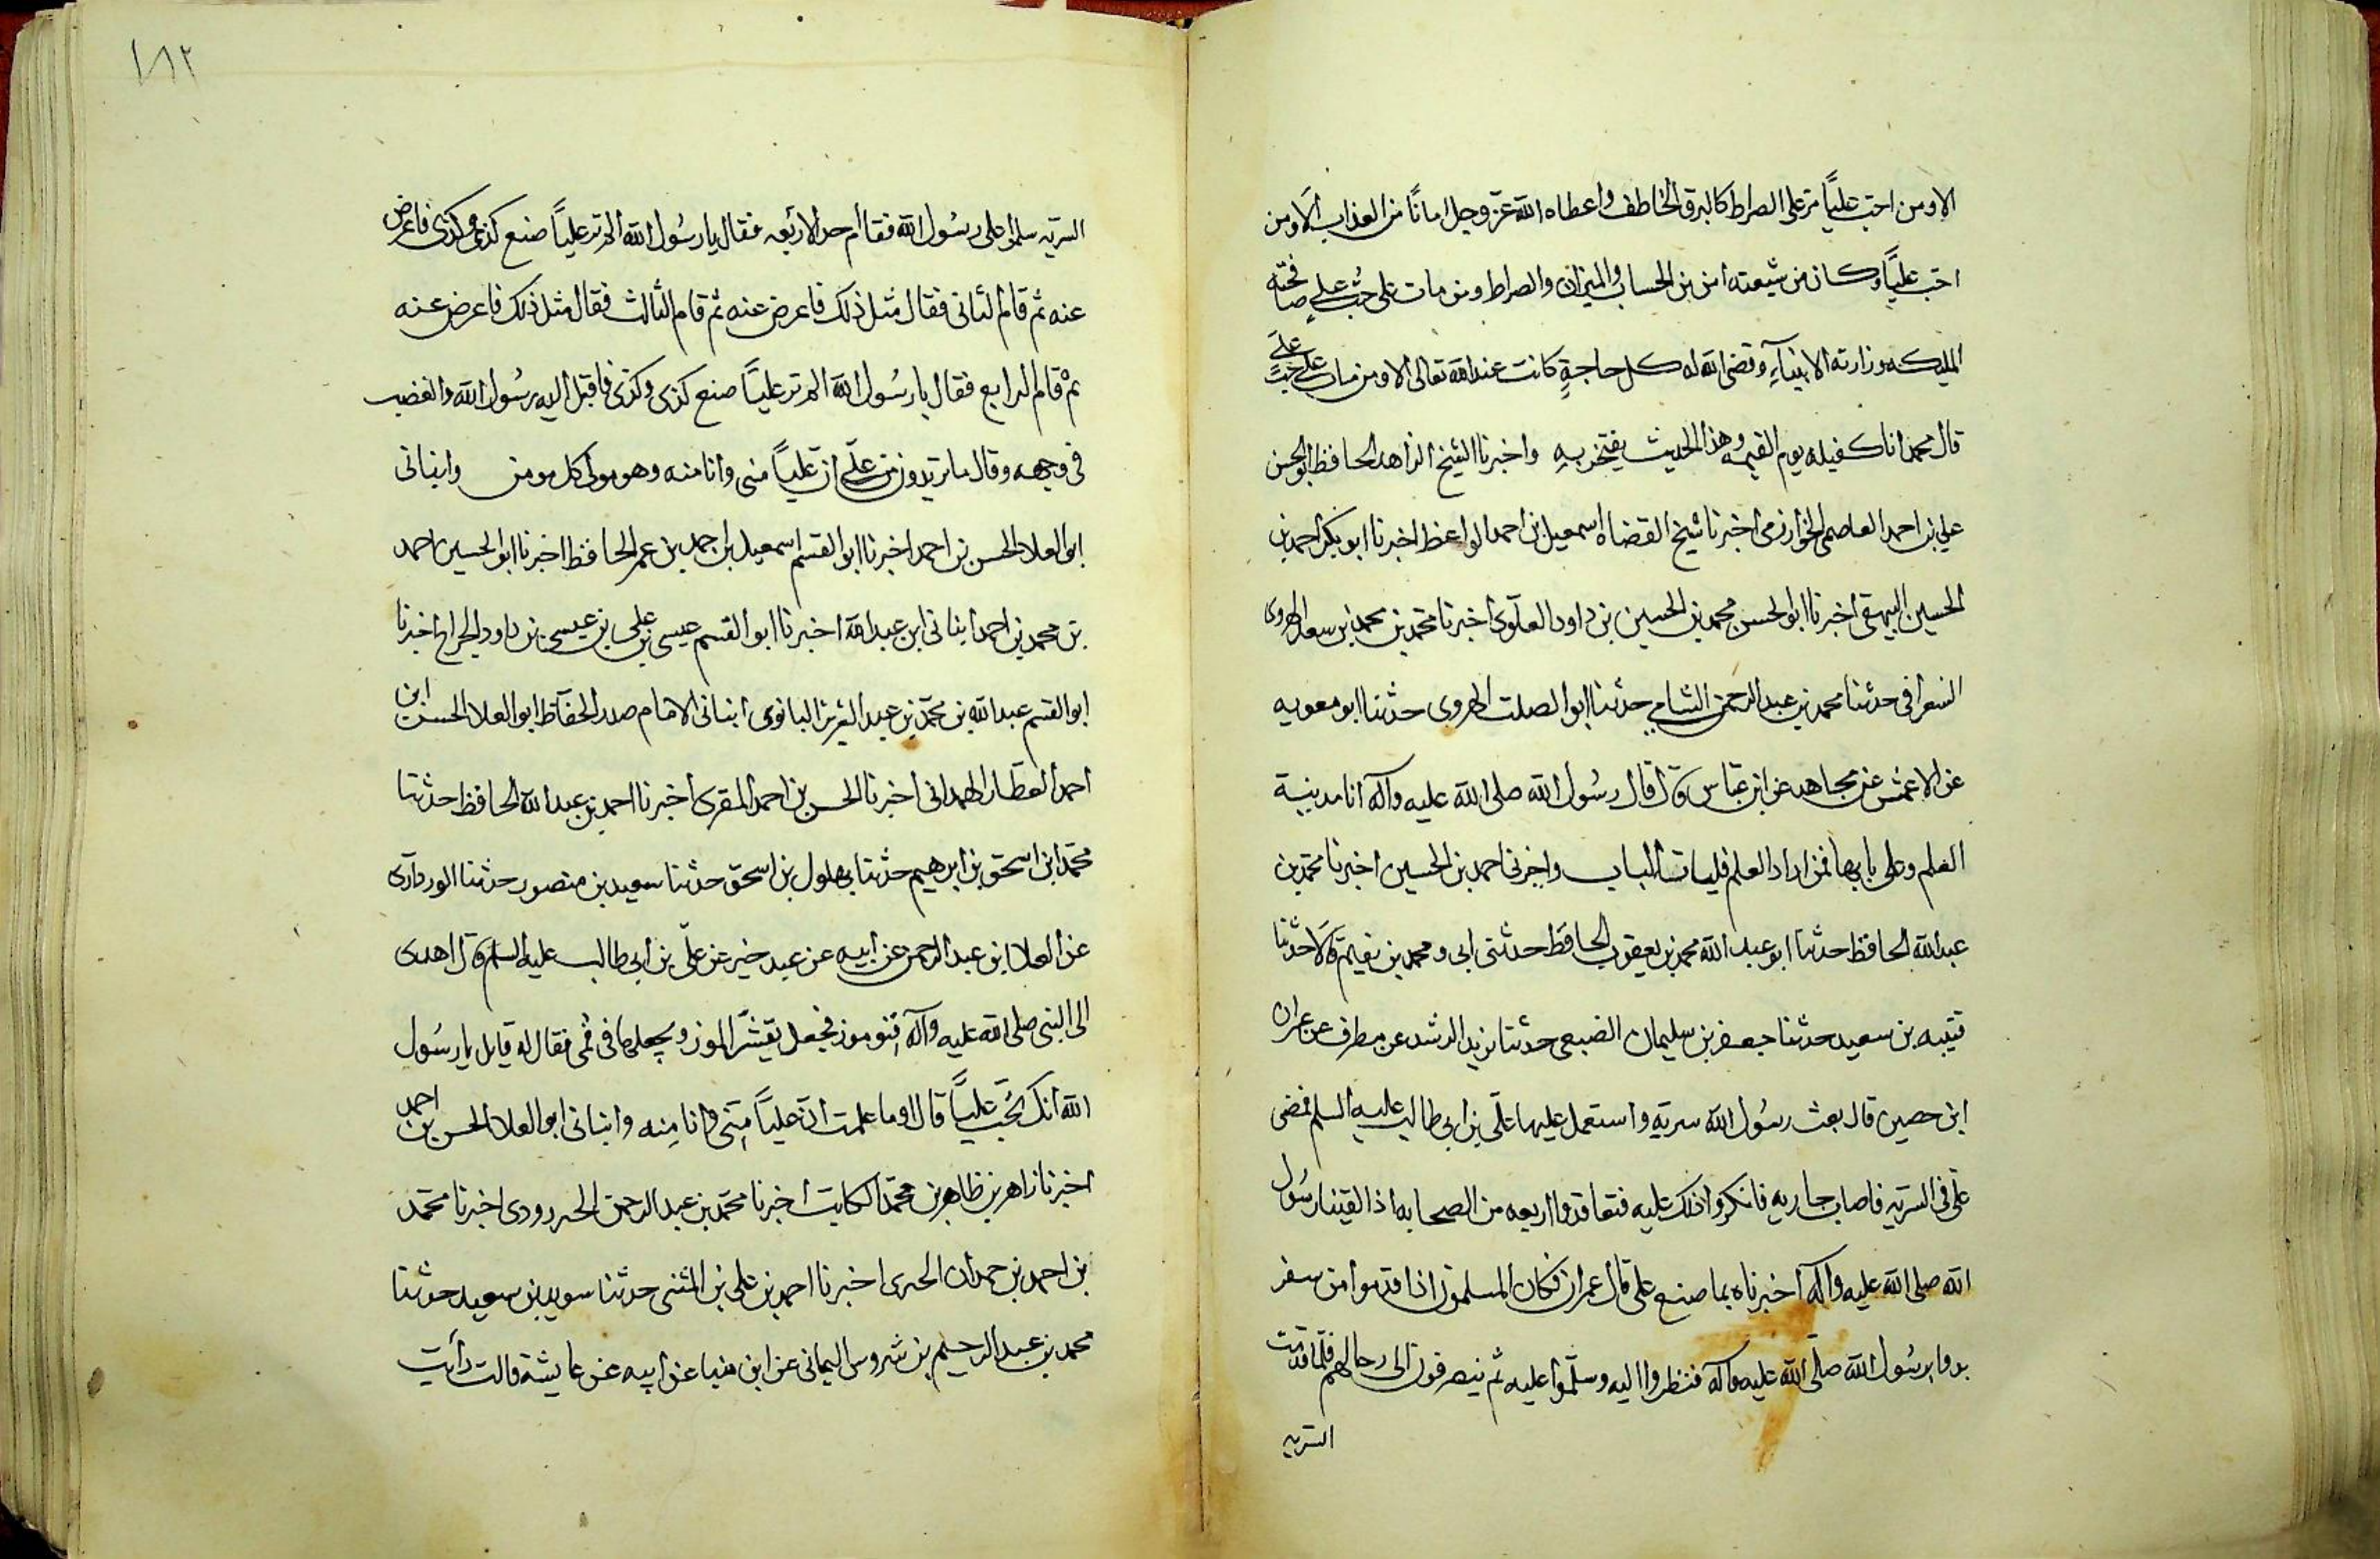 الا ومن احب عليا مر على الصراط كالبرق الخاطف واعطاه الله عز وجل امانا من العذاب الا ومن
احب عليا وكان من شيعته امن من الحساب والميزان والصراط ومن مات على حب علي صافحته
المليكه وزارته الانبيآء وقضى الله له كل حاجة كانت عند الله تعالى الا ومن مات على حب علي
قال محمد انا كفيله يوم القيمه وهذا الحديث يفتخر به واخبرنا الشيخ الزاهد الحافظ ابو الحسن
علي بن احمد العاصمي الخوارزمي اخبرنا شيخ القضاه اسمعيل بن احمد الواعظ اخبرنا ابو بكر احمد بن
الحسين البيهقي اخبرنا ابو الحسن محمد بن الحسين بن داود العلوي اخبرنا محمد بن محمد بن سعد الهروي
الشعرانى حدثنا محمد بن عبد الرحمن الشامي حدثنا ابو الصلت الهروى حدثنا ابو معويه
عن الاعمش عن مجاهد عن ابن عباس قال قال رسول الله صلى الله عليه وآله انا مدينة
العلم وعلى بابها فمن اراد العلم فليات الباب واخبرنى احمد بن الحسين اخبرنا محمد بن
عبد الله الحافظ حدثنا ابو عبد الله محمد بن يعقوب الحافظ حدثنى ابى ومحمد بن نعيم قالا حدثنا
قتيبه بن سعيد حدثنا جعفر بن سليمان الضبعى حدثنا يزيد الرشد عن مطرف عن عمران
ابن حصين قال بعث رسول الله سرية واستعمل عليها علي بن ابي طالب عليه السلم فمضى
على في السريه فاصاب جاريه فانكروا ذلك عليه فتعاقدوا اربعه من الصحابه اذا لقينا رسول
الله صلى الله عليه وآله اخبرناه بما صنع على قال عمران فكان المسلمون اذا قدموا من سفر
بدوا برسول الله صلى الله عليه وآله فنظروا اليه وسلموا عليه ثم ينصرفون الى رحالهم فلما قدمت
السريه
١٨٢
السريه سلموا على رسول الله فقام احد الاربعه فقال يا رسول الله الم تر عليا صنع كذى وكذى فاعرض
عنه ثم قام الثانى فقال مثل ذلك فاعرض عنه ثم قام الثالث فقال مثل ذلك فاعرض عنه
ثم قام الرابع فقال يا رسول الله الم تر عليا صنع كذى وكذى فاقبل اليه رسول الله والغضب
فى وجهه وقال ما تريدون من علي ان عليا منى وانا منه وهو مولى كل مومن وانبانى
ابو العلا الحسن بن احمد اخبرنا ابو القسم اسمعيل بن احمد بن عمر الحافظ اخبرنا ابو الحسين احمد
بن محمد بن احمد انبانى ابن عبد الله اخبرنا ابو القسم عيسى بن علي بن عيسى بن داود الجراح اخبرنا
ابو القسم عبد الله بن محمد بن عبد العزيز البانوى انبانى الامام صدر الحفاظ ابو العلا الحسن ابن
احمد العطار الهمدانى اخبرنا الحسن بن احمد المقرى اخبرنا احمد بن عبد الله الحافظ حدثنا
محمد ابن اسحق بن ابرهيم حدثنا بهلول بن اسحق حدثنا سعيد بن منصور حدثنا الوردآرى
عن العلا ابن عبد الرحمن عن ابيه عن عبد خير عن علي بن ابى طالب عليه السلم قال اهدى
الى النبى صلى الله عليه وآله قنو موز فجعل يقشر الموز ويجعلها فى فمى فقال له قايل يا رسول
الله انك تحب عليا قال او ما علمت ان عليا منى وانا منه وانبانى ابو العلا الحسن بن احمد
اخبرنا زاهر بن ظاهر بن محمد الكاتب اخبرنا محمد بن عبد الرحمن اخبرنا محمد
بن احمد بن حمدان الحىرى اخبرنا احمد بن على بن المثنى حدثنا سويد بن سعيد حدثنا
محمد بن عبد الرحيم بن شروس اليمانى عن ابن مينا عن ابيه عن عايشة قالت رأيت